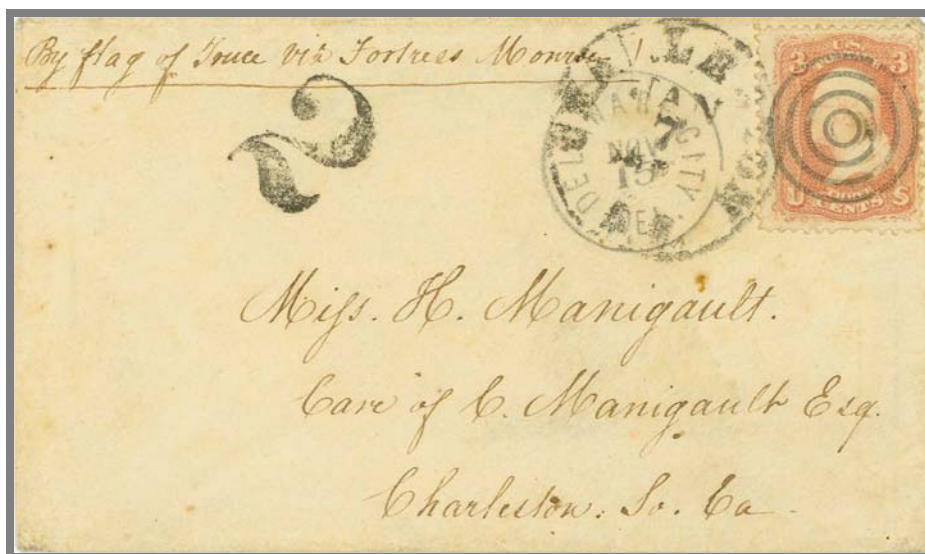 By flag of Truce via Fortress Monroe
2
DELAWARE CITY
NOV
15
DEL.
JAN
7
3 U.S. 3
U CENTS S
Miss. H. Manigault.
Care of C. Manigault Esq.
Charleston. So. Ca.